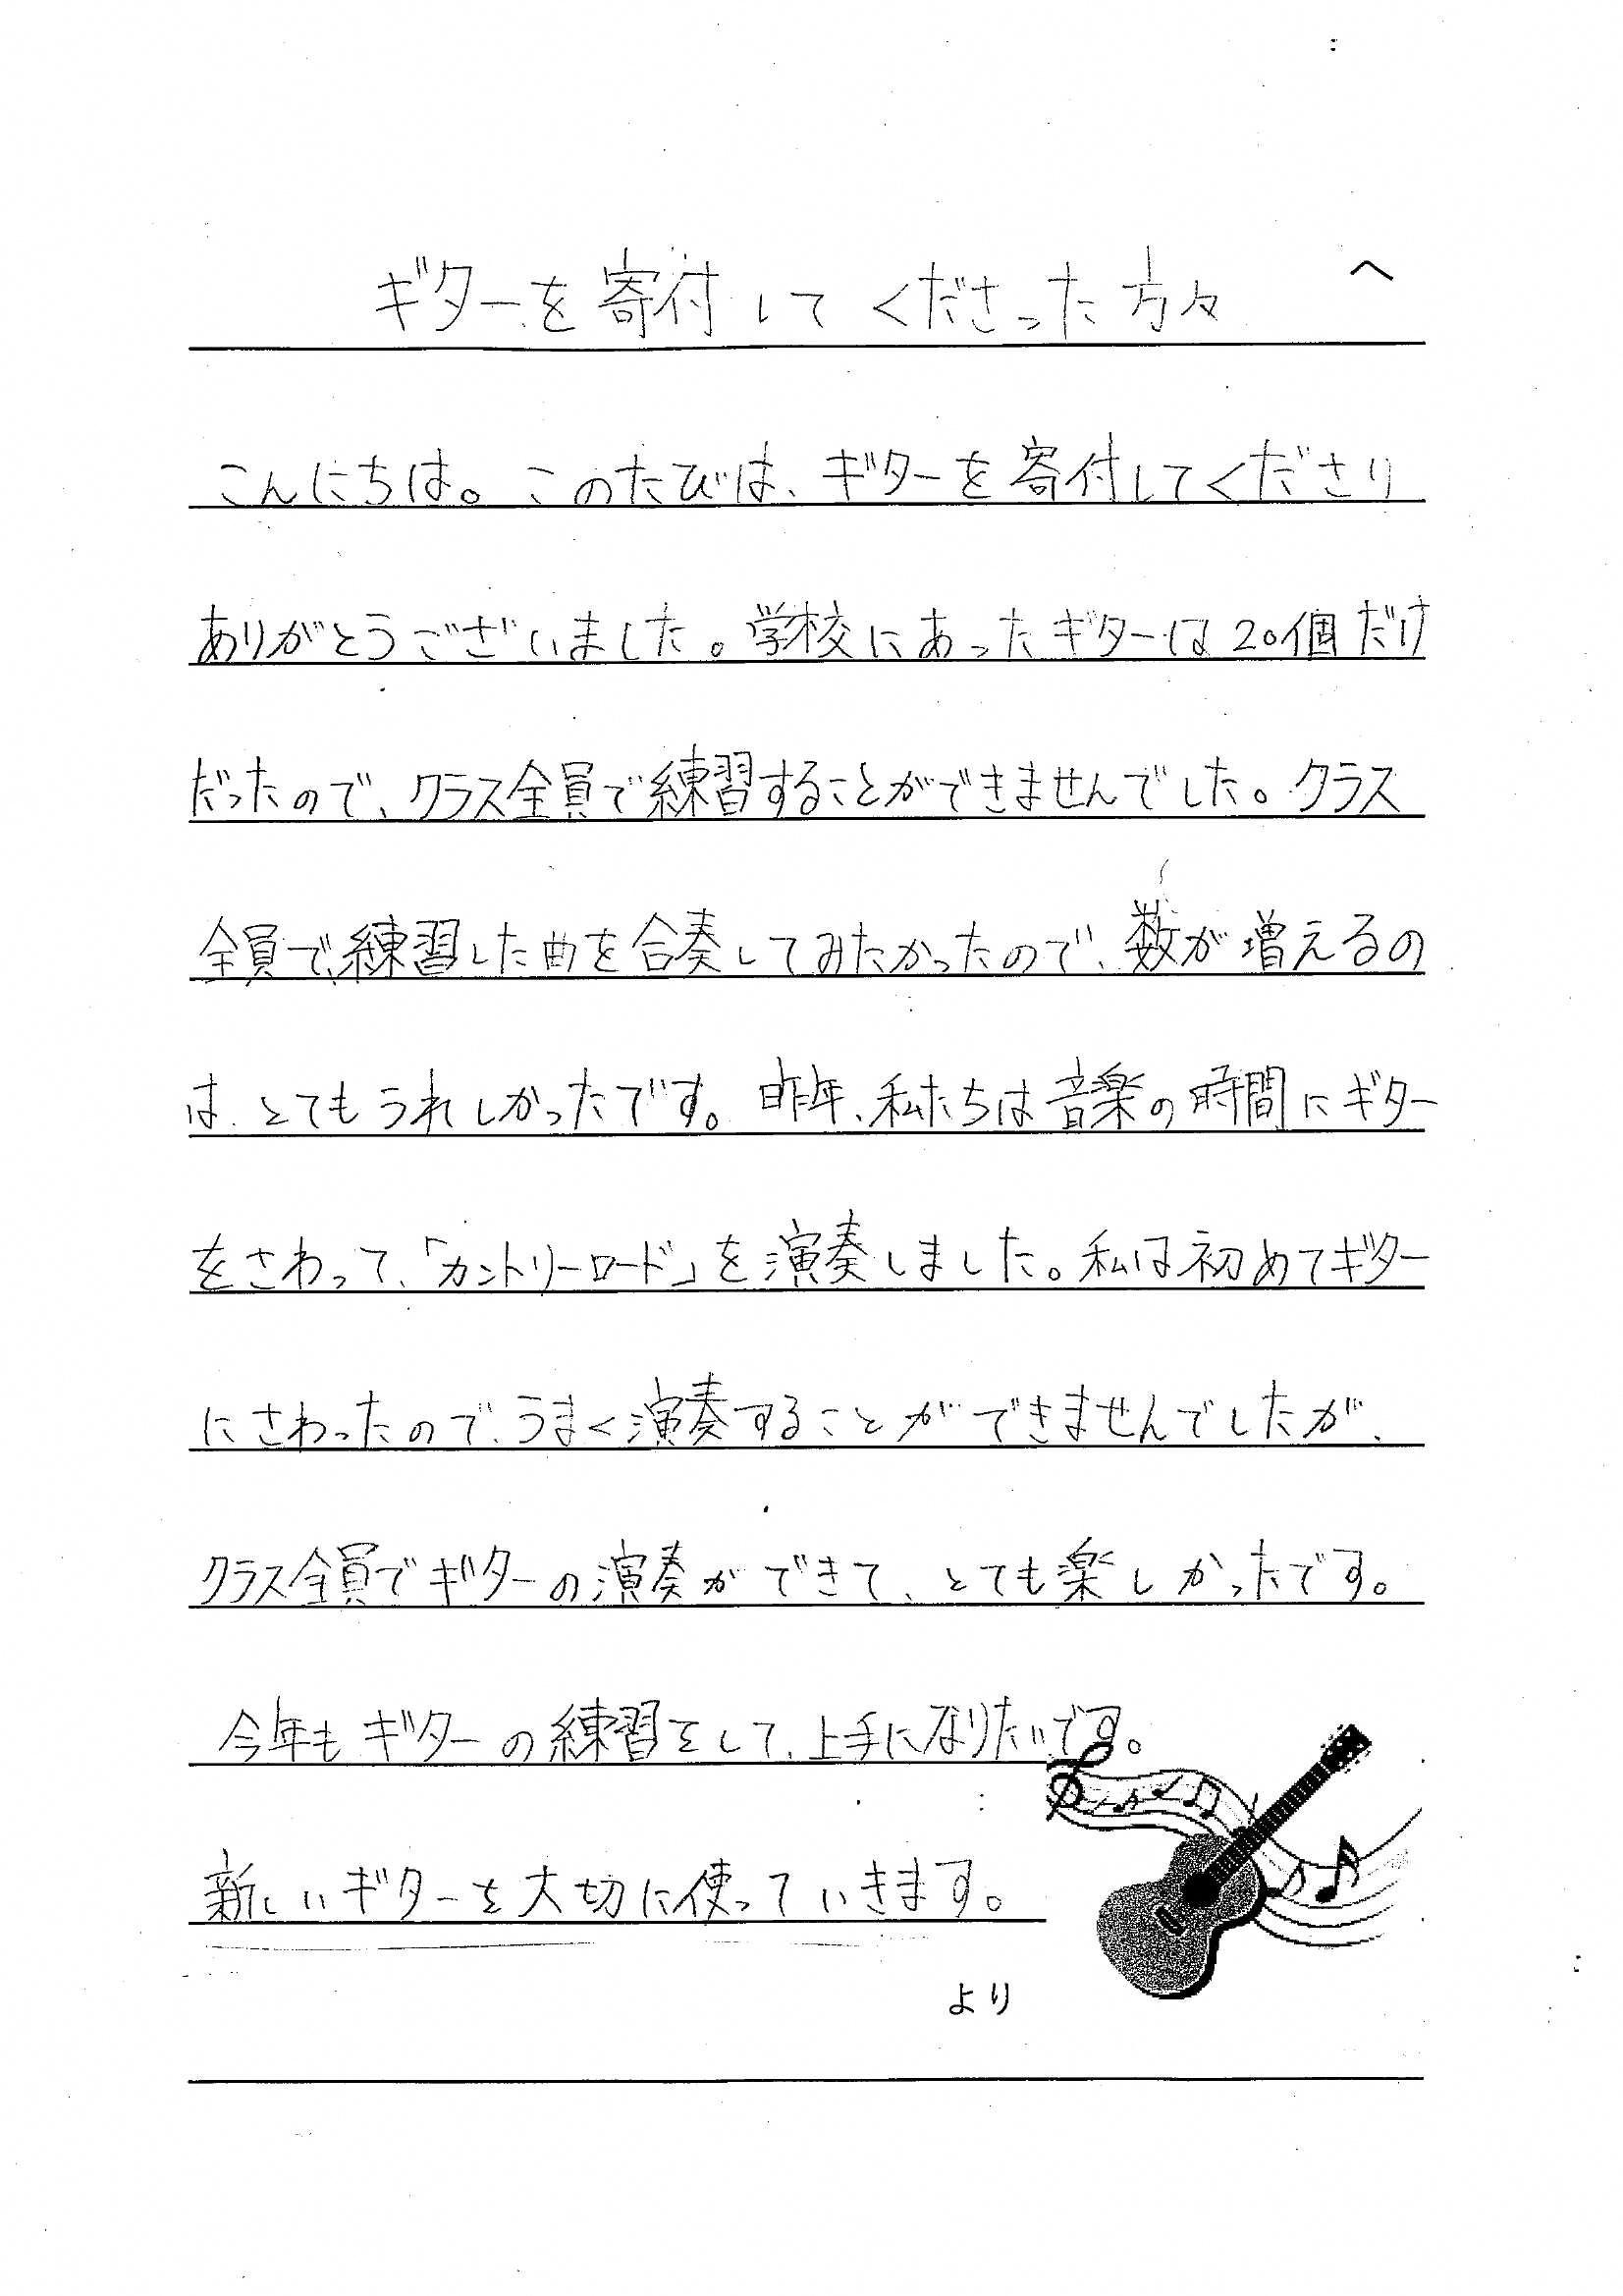 ギターを寄付してくださった方々 へ
こんにちは。このたびは、ギターを寄付してくださり
ありがとうございました。学校にあったギターは20個だけ
だったので、クラス全員で練習することができませんでした。クラス
全員で、練習した曲を合奏してみたかったので、数が増えるの
は、とてもうれしかったです。昨年、私たちは音楽の時間にギター
をさわって、「カントリーロード」を演奏しました。私は初めてギター
にさわったので、うまく演奏することができませんでしたが、
クラス全員でギターの演奏ができて、とても楽しかったです。
今年もギターの練習をして、上手になりたいです。
新しいギターを大切に使っていきます。
より